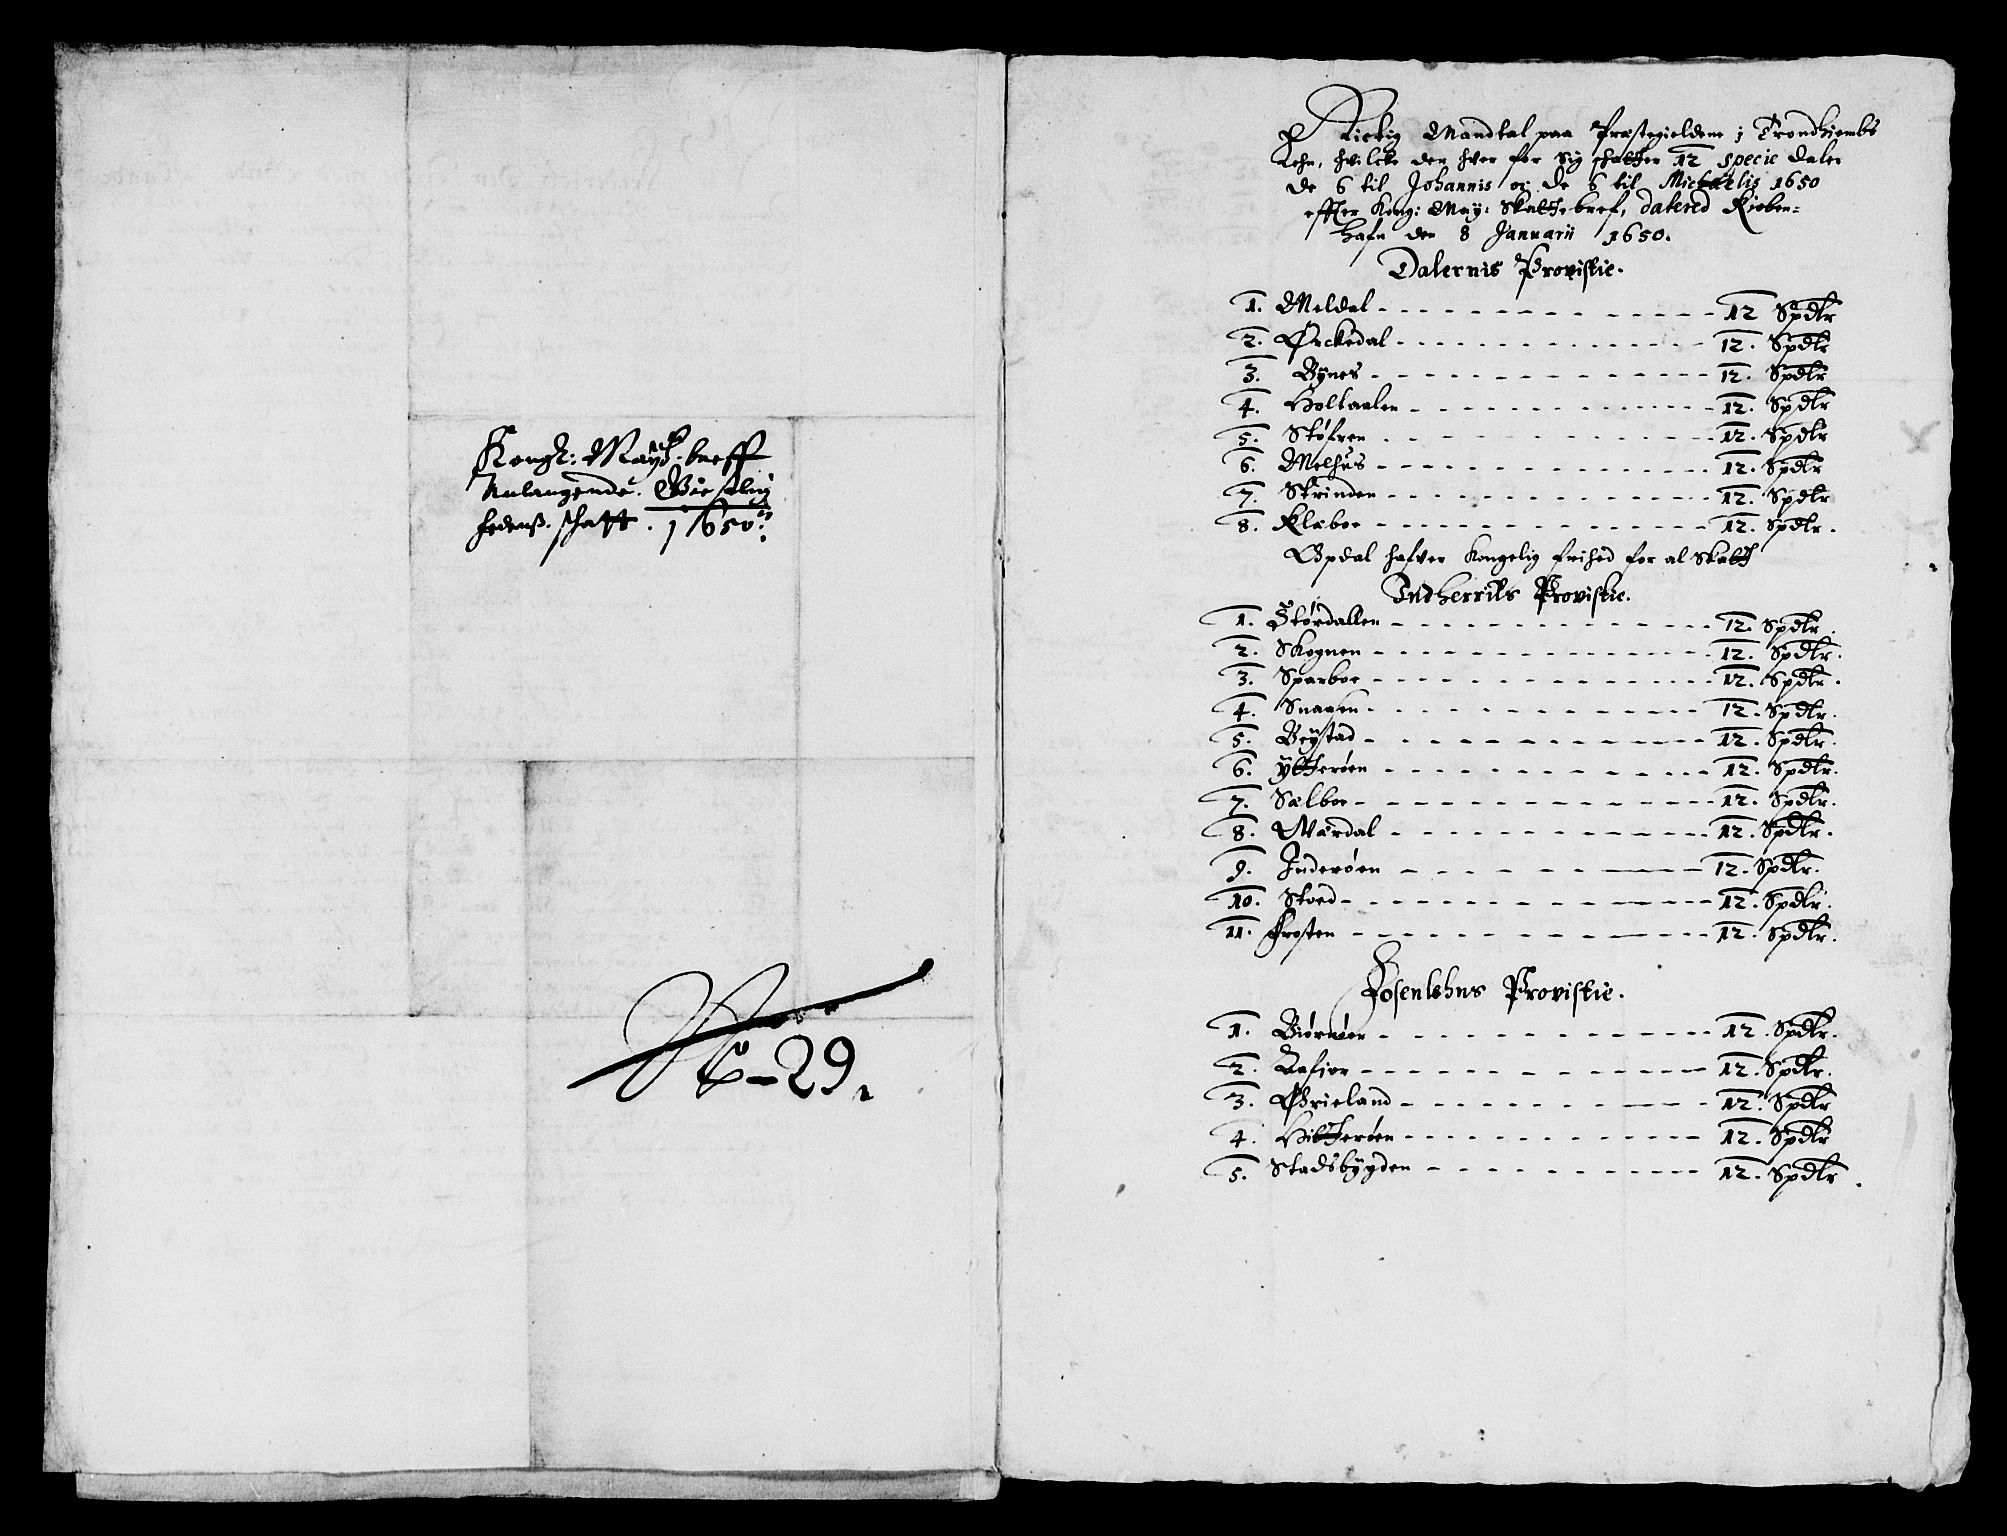 Kongl: Mayts: breff
Anlangende. Giestlig
hedens. schatt. 1650:
No-29.
Rictig Mandtal paa Præstegieldene i Trondhiembs
Lehn, hvilcke der hver for sig schatter 12 specie daler
de 6 til Johannis oc de 6 til Michaelis 1650
effter Kong: May: Skattebref, datered Kiøben=
hafn den 8 Januarii 1650.
Dalernis Provistie.
1. Meldal - - - 12 Spdlr
2. Ørckedal - - - 12. Spdlr
3. Bynes - - - 12. Spdlr
4. Holtaalen - - - 12. Spdlr
5. Støfren - - - 12. Spdlr
6. Melhus - - - 12. Spdlr
7. Strinden - - - 12. Spdlr
8. Klæboe - - - 12. Spdlr.
Opdal hafver Kongelig frihed for al Skatt
Indherrits Provistie.
1. Størdallen - - - 12. Spdlr.
2. Skognen - - - 12. Spdlr.
3. Sparboe - - - 12. Spdlr.
4. Snaasen - - - 12. Spdlr.
5. Beÿstad - - - 12. Spdlr.
6. Ÿtterøen - - - 12. Spdlr.
7. Sælboe - - - 12. Spdlr.
8. Værdal - - - 12. Spdlr.
9. Inderøen - - - 12. Spdlr.
10. Stoed - - - 12. Spdlr.
11. Frosten - - - 12. Spdlr.
Fosenlehns Provistie.
1. Biørnøer - - - 12. Spdlr.
2. Aafior - - - 12. Spdlr.
3. Ørieland - - - 12. Spdlr
4. Hitterøen - - - 12. Spdlr
5. Stadsbÿgden - - - 12. Spdlr.